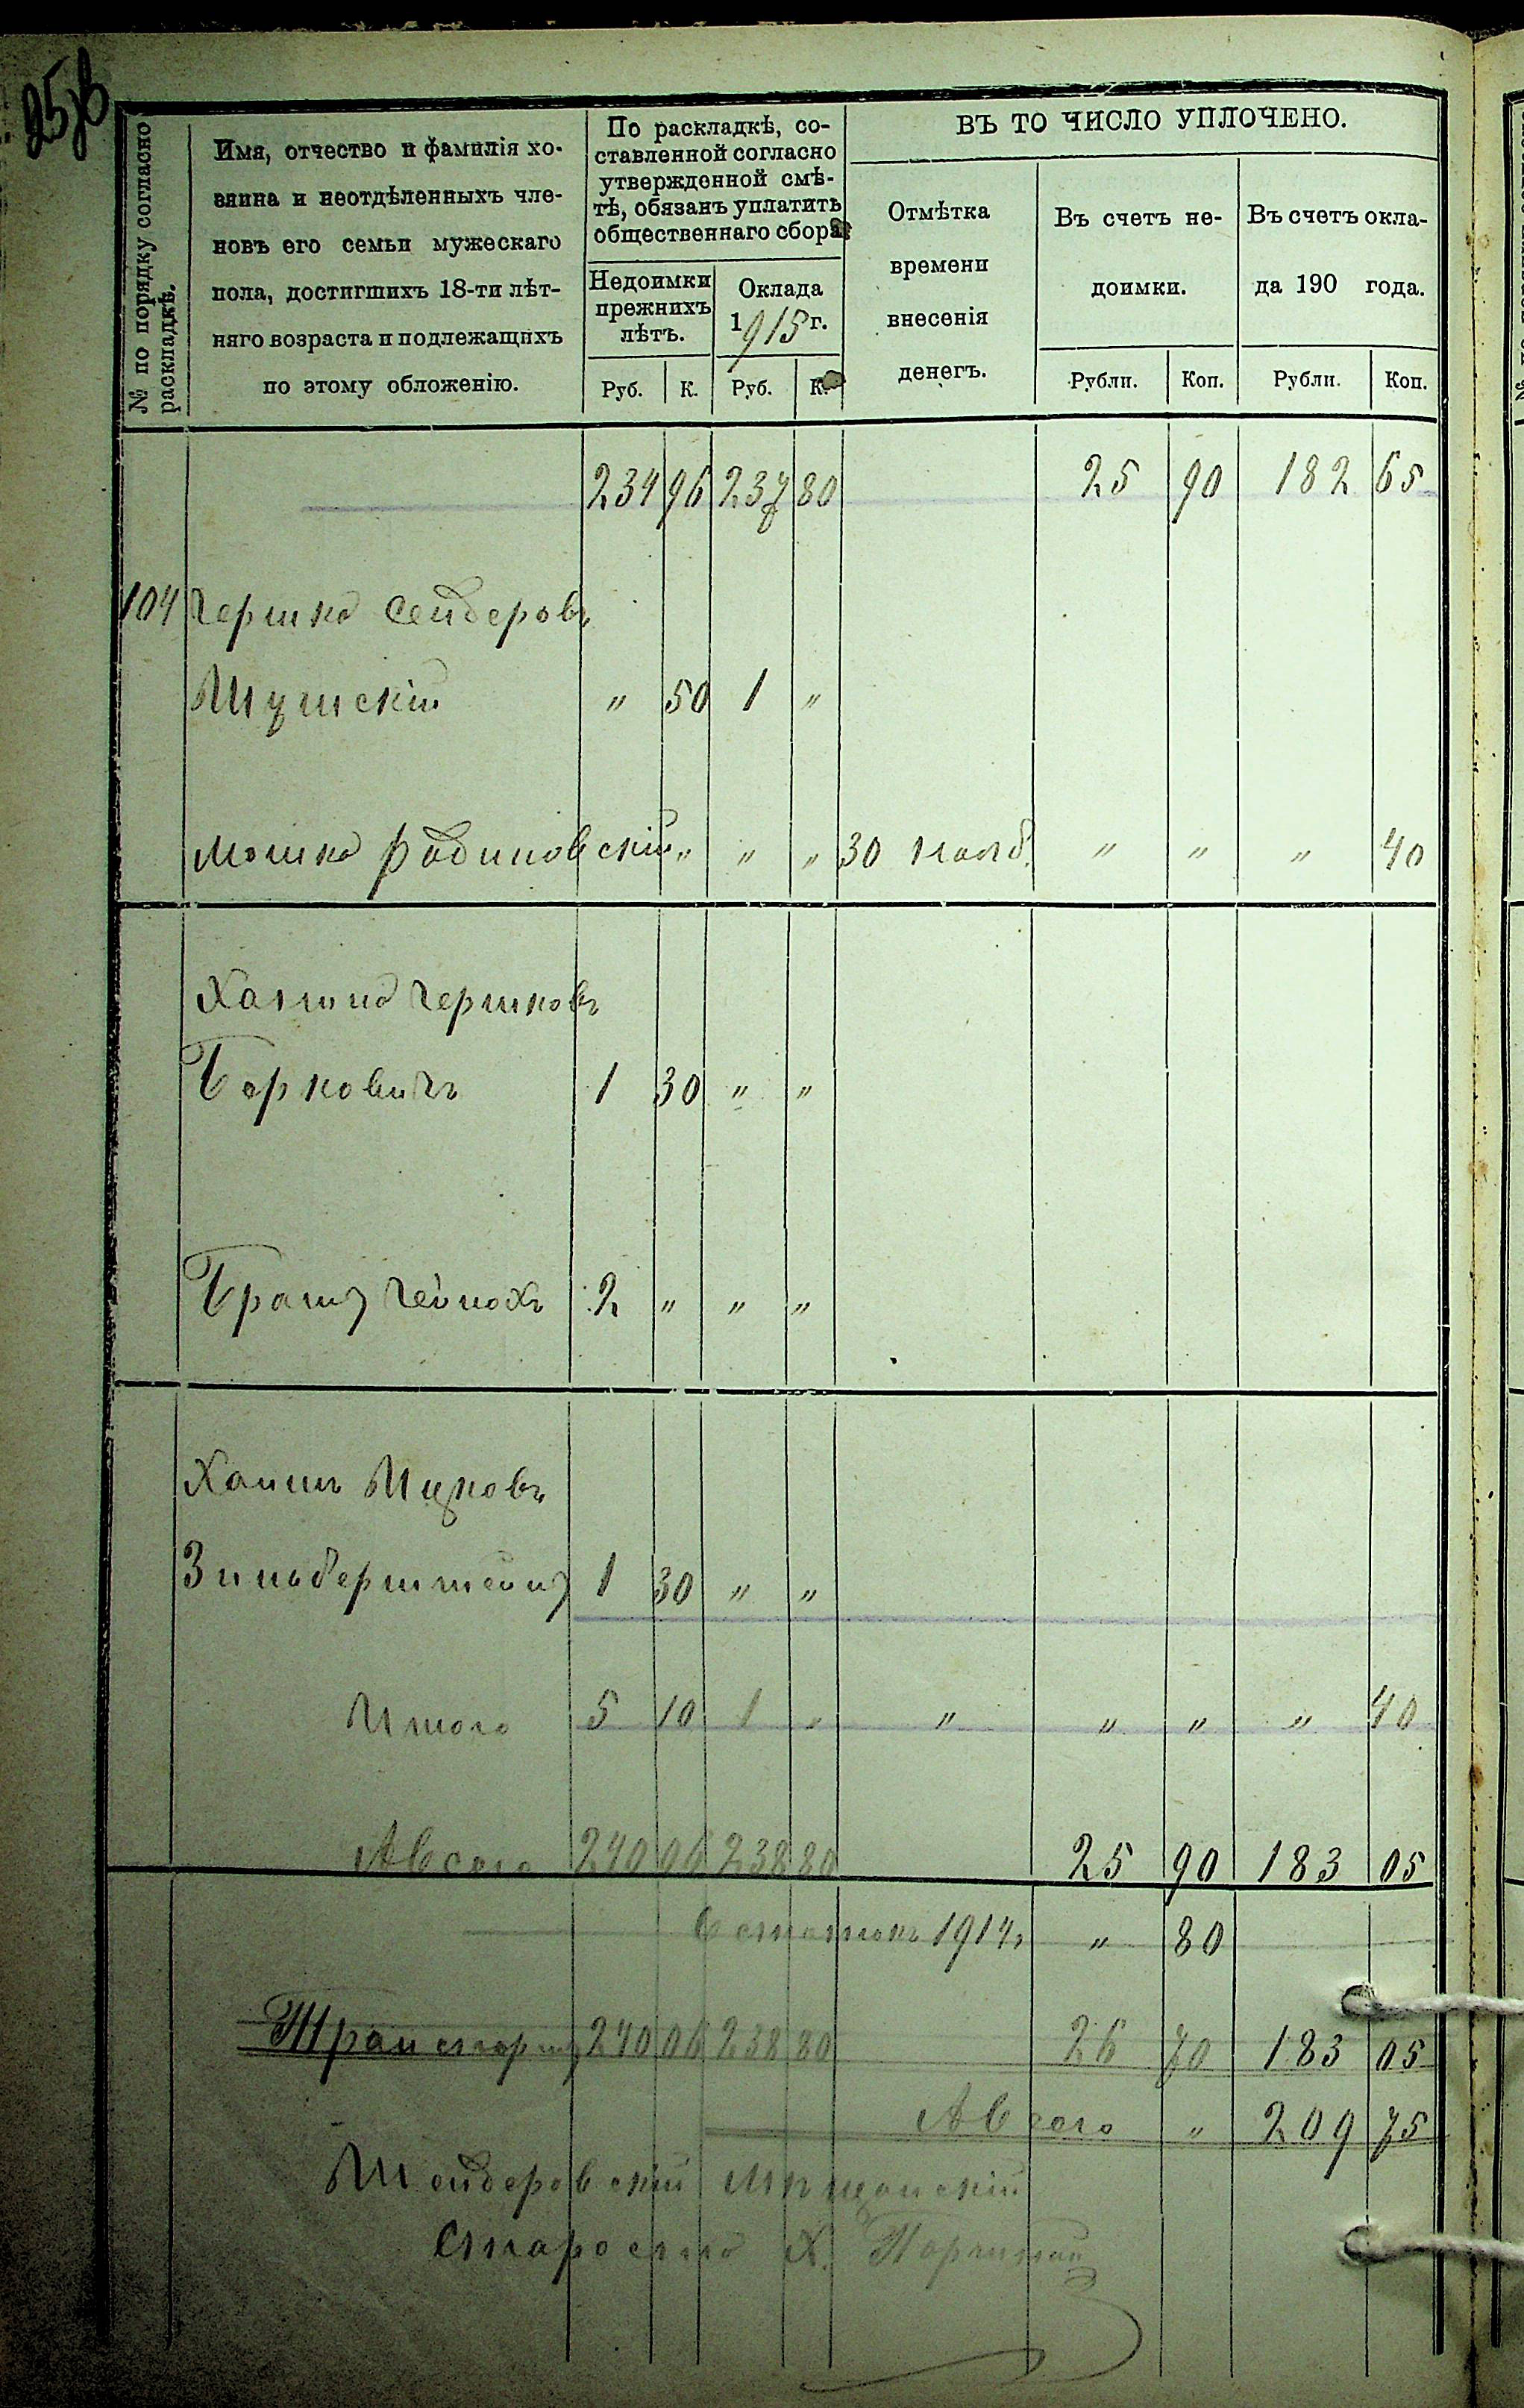 25об
№ по порядку согласно раскладкѣ.
Имя, отчество и фамилія хо-
зяина и неотдѣленныхъ чле-
новъ его семьи мужескаго
пола, достигшихъ 18-ти лѣт-
няго возраста и подлежащихъ
по этому обложенію.
По раскладкѣ, со-
ставленной согласно
утвержденной смѣ-
тѣ, обязанъ уплатить
общественнаго сбора
Недоимки
прежнихъ
лѣтъ.
Оклада
1915 г.
Руб. К. Руб. К.
ВЪ ТО ЧИСЛО УПЛОЧЕНО.
Отмѣтка
времени
внесенія
денегъ.
Въ счетъ не-
доимки.
Въ счетъ окла-
да 190 года.
Рубли. Коп. Рубли. Коп.
234 96 237 80 25 90 182 65
104 Гершко Сендеровъ
Мушскій " 50 1 "
Мошко Рабиновскій " " " 30 нояб. " " " 40
Гершковъ
Берковичъ 1 30 " "
2 " " "
Хаимъ Ицковъ
Зильберштейнъ 1 30 " "
Итого 5 10 1 " " " " " 40
А всего 240 06 238 80 25 90 183 05
Остатокъ 1914 г " 80
Транспортъ 240 06 238 80 26 70 183 05
А всего " 209 75
Мѣщанскій
Староста Х.